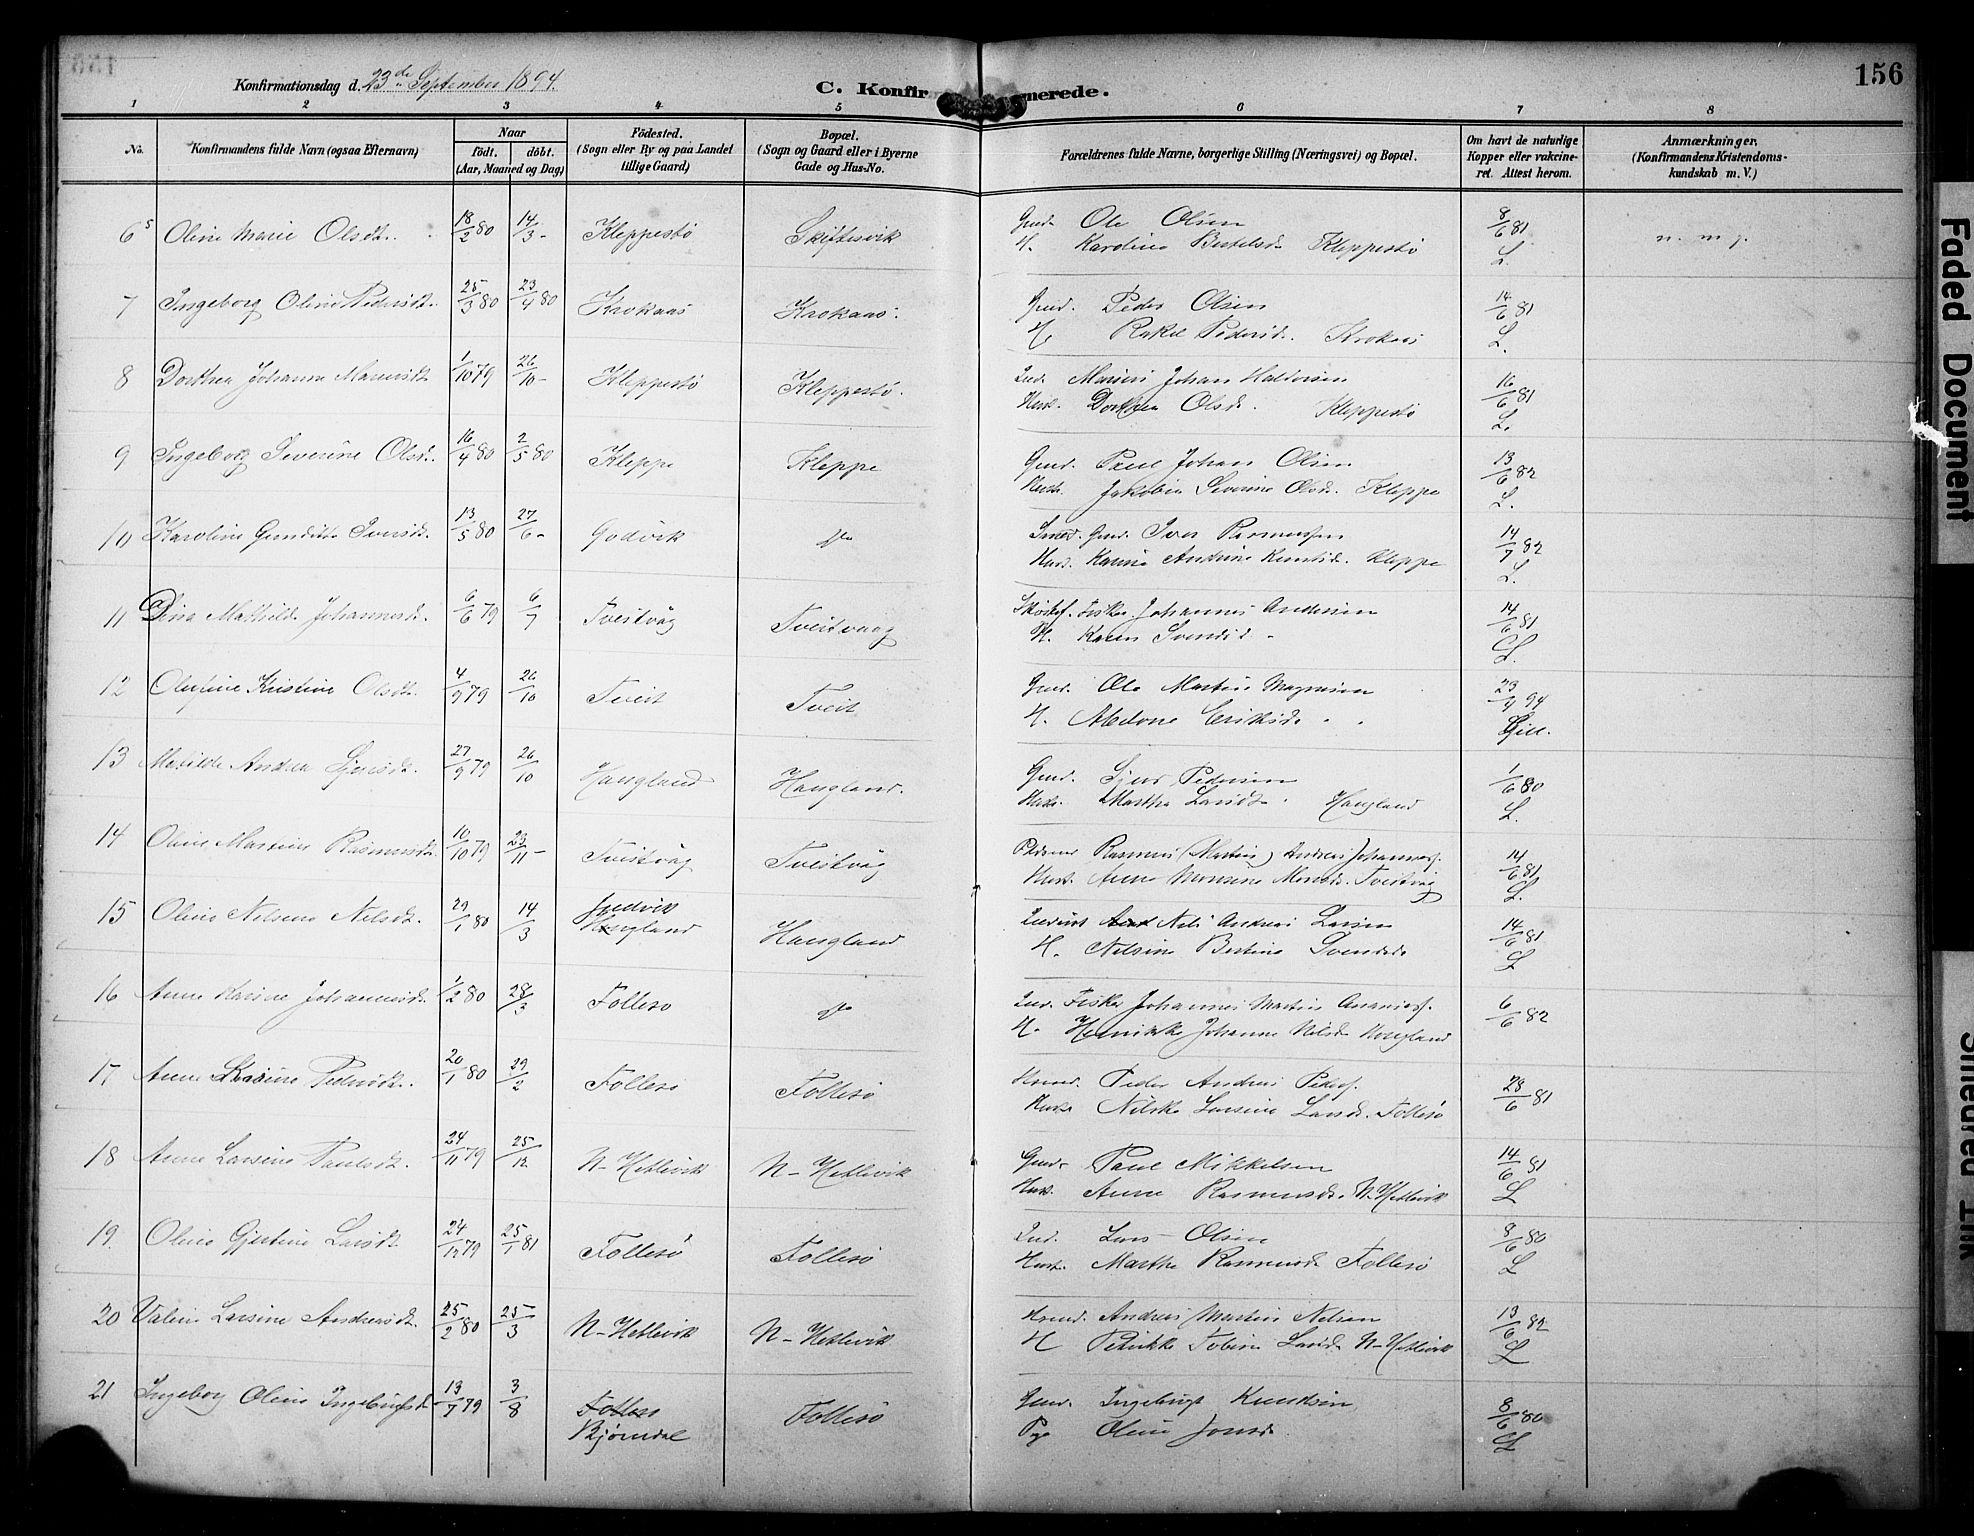 156
Konfirmationsdag d. 23de September 1894.
C. Konfirmerede.
1 2 3 4 5 6 7 8
No. Konfirmandens fulde Navn (ogsaa Efternavn) Naar födt. döbt. (Aar, Maaned og Dag) Födested. (Sogn eller By og paa Landet tillige Gaard) Bopæl. (Sogn og Gaard eller i Byerne Gade og Hus-No. Forældrenes fulde Navne, borgerlige Stilling (Næringsvei) og Bopæl. Om havt de naturlige Kopper eller vakcineret. Attest herom. Anmærkninger. (Konfirmandens Kristendomskundskab m. V.)
6 Oline Marie Olsdt. 18/2 80 14/3 - Kleppestö Skiftesvik Gmd. Ole Olsen 8/6 81
H. Karoline Bertelsd. Kleppestö L.
7 Ingeborg Oline Pedersdt. 25/3 80 23/4 80 Krokaas Krokaas. Gmd. Peder Olsen 14/6 81
H. Rakel Pedersd. Krokaas L.
8 Dorthea Johanne 1/10 79 26/10 - Kleppestö Kleppestö. Johan Halvorsen 16/6 81
Hust. Dorthea Olsd. Kleppestö L.
9 Ingeborg Severine Olsd. 16/4 80 2/5 80 Kleppe Kleppe Gmd. Paul Johan Olsen 13/6 82
Hust. Jakobia Severine Olsd. Kleppe L.
10 Karoline Iversd. 13/5 80 27/6 - Godvik do Gmd. Iver Rasmussen 14/7 82
Hust. Karine Andrine Knutsd. Kleppe L.
11 Dina Mathilde Johannesd. 6/6 79 6/7 Tveitvåg Tveitvaag Fisker Johannes Andersen 14/6 81
H. Karen Svendsd. L.
12 Olufine Kristine Olsdt. 4/9 79 26/10 Tveit Tveit Gmd. Ole Martin Magnesen 23/9 94
H. Eriksd.
13 Matilde Andrea Sjursdt. 27/9 79 26/10 Haugland Haugland. Gmd. Sjur Pedersen 1/6 80
Hust. Martha Larsdt. Haugland L.
14 Oline Martine Rasmusdt. 10/10 79 23/11 - Tveitvåg Tveitvåg Rasmus (Martin) Andreas Johannesf. 14/6 81
Hust. Anne Monsine Monsd. Tveitvåg L.
15 Oline Nelsine Nelsdt. 29/1 80 14/3 Haugland Haugland Nels Andreas Larsen 14/6 81
H. Nelsine Bertine Svendsd. L
16 Anne Karine Johannesd. 1/2 80 28/3 Follesø do Ind. Fisker Johannes Martin 6/6 82
H. Henrikke Johanne Nelsd. Haugland
17 Anne Pedersdt. 20/1 80 29/2 Follesø Follesø Peder Andreas Pedersf. 28/6 81
Hust. Nilsine Larsine Larsd. Follesø
18 Anne Larsine Paulsdt. 24/11 79 25/12 N-Hetlevik N-Hetlevik Gmd. Paul Mikkelsen 14/6 81
Hust. Anne Rasmusd. N-Hetlevik L
19. Oline Gjertine Larsdt. 24/12 79 25/1 81 Follesø Follesø Ind. Lars Olsen 8/6 80
Hust. Marthe Rasmusd. Follesø L
20 Larsine Andreasdt. 25/2 80 25/3 N-Hetlevik N-Hetlevik Andreas Martin Nelsen 13/6 82
H Petrikke Tobine Larsd. N-Hetlevik L
21 Ingeborg Oline Ingebrigtsd. 13/7 79 3/8 Follesø Follesø Gmd. Ingebrigt Knudsen 8/6 80
Bjørndal Pige Oline Jonsd. L
Faded Document
Smeared Ink